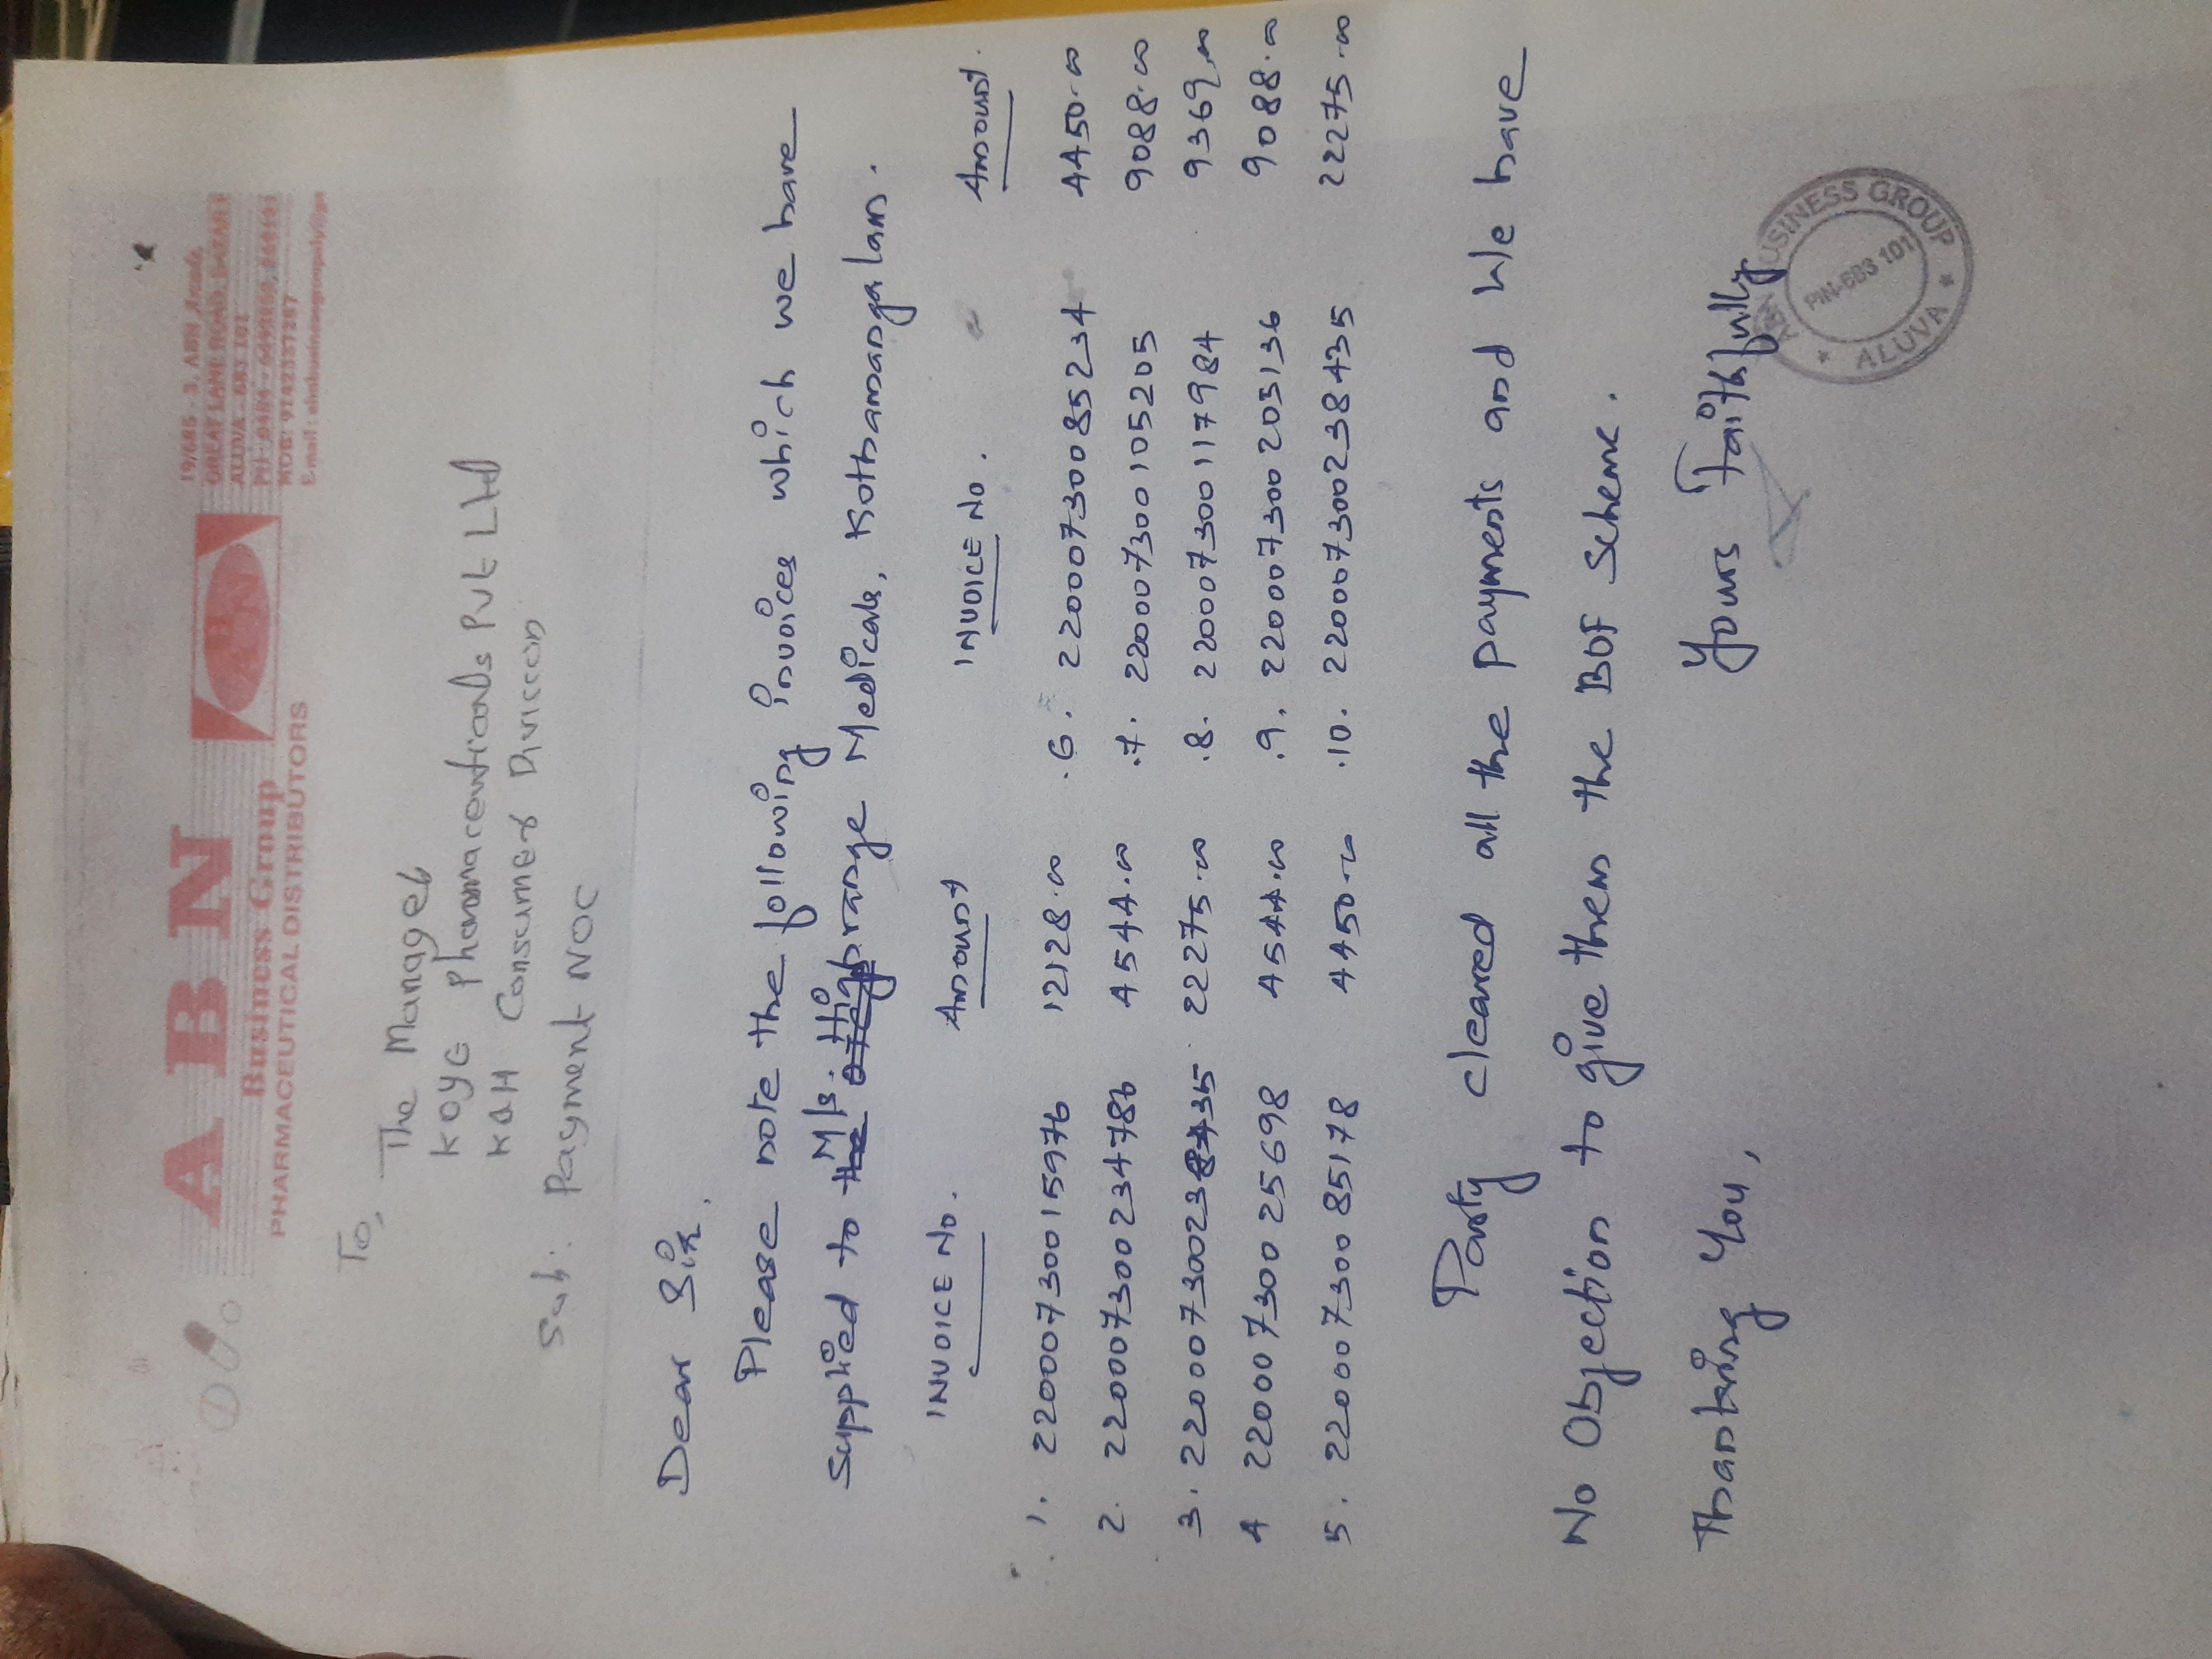 A B N
Business Group
PHARMACEUTICAL DISTRIBUTORS
19/685 - 3, ABN
ALUVA - 683 101
To,
The Manager
Pharmaceuticals Pvt Ltd
Consumer Divission
Sub: Payment NOC
Dear Sir,
Please note the following invoices which we have
Supplied to M/s. Medicals, Kothamangalam.
INVOICE No. Amount INVOICE No. Amount
1. 2200073001 5976 12128.00 .6. 220007300 85234 4450.00
2. 220007300 234786 4544.00 .7. 220007300 105205 9088.00
3. 220007300238435 22275.00 .8. 220007300 117984 9369.00
4 220007300 25698 4544.00 .9. 220007300 203136 9088.00
5. 220007300 85178 4450.00 .10. 220007300238435 22275.00
Party cleared all the payments and We have
No Objection to give them the BDF Scheme.
Thanking You,
Yours Faithfully
ABN BUSINESS GROUP
PIN-683 101
* ALUVA *